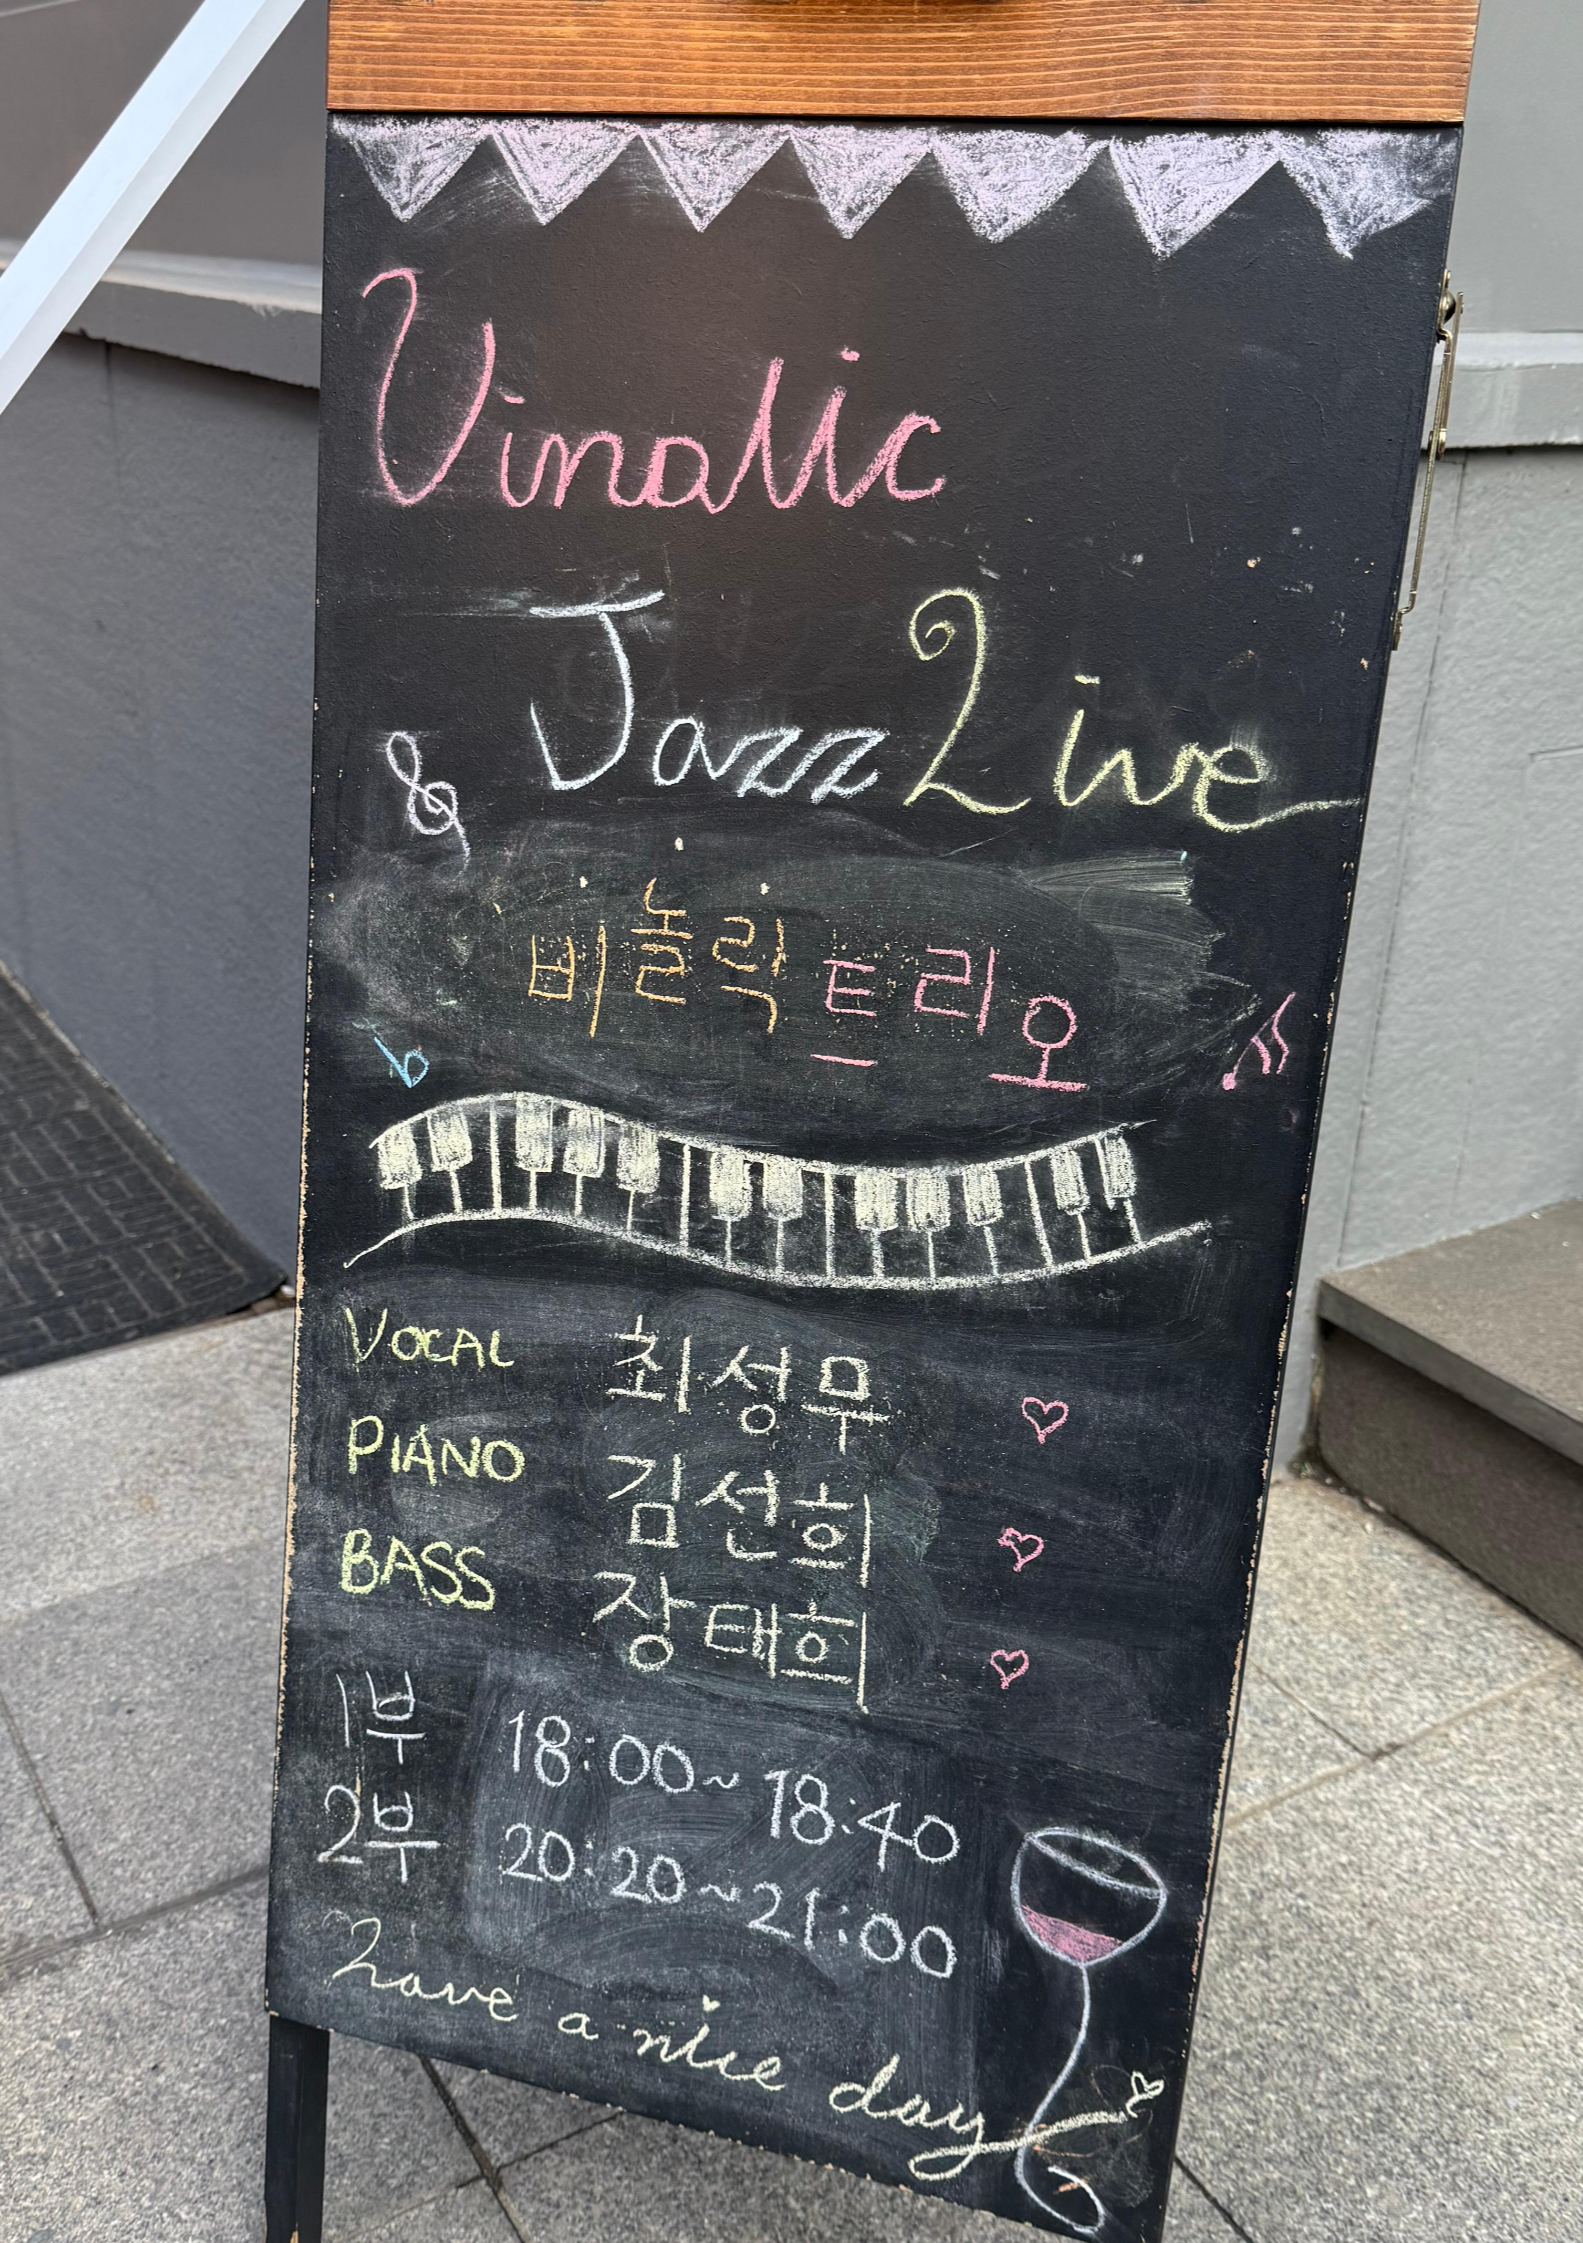 Vinolic
Jazz Live
비놀릭 트리오
VOCAL 최성무
PIANO 김선희
BASS 장태희
1부 18:00~18:40
2부 20:20~21:00
Have a nice day